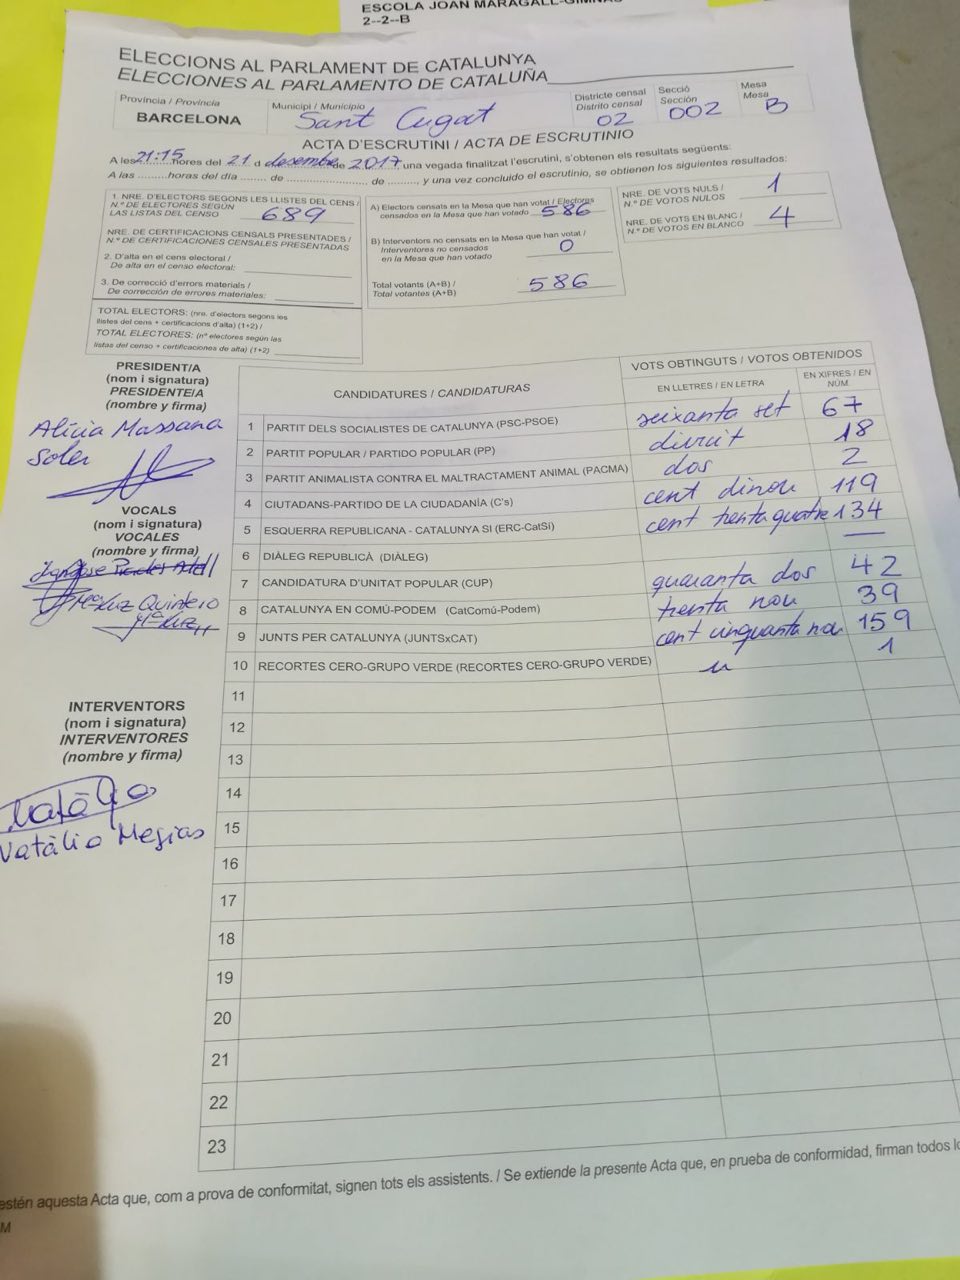 ESCOLA JOAN MARAGALL-GIMNÀS
2--2--B
ELECCIONS AL PARLAMENT DE CATALUNYA
ELECCIONES AL PARLAMENTO DE CATALUÑA
Província / Provincia
BARCELONA
Municipi / Municipio
Sant Cugat
Districte censal
Distrito censal
02
Secció
Sección
002
Mesa
Mesa
B
ACTA D'ESCRUTINI / ACTA DE ESCRUTINIO
A les 21:15 hores del 21 d desembre de 2017, una vegada finalitzat l'escrutini, s'obtenen els resultats següents:
A las ......... horas del día ....... de ..................... de ........, y una vez concluido el escrutinio, se obtienen los siguientes resultados:
1. NRE. D'ELECTORS SEGONS LES LLISTES DEL CENS /
N.º DE ELECTORES SEGÚN
LAS LISTAS DEL CENSO
689
NRE. DE CERTIFICACIONS CENSALS PRESENTADES /
N.º DE CERTIFICACIONES CENSALES PRESENTADAS
2. D'alta en el cens electoral /
De alta en el censo electoral:
3. De correcció d'errors materials /
De corrección de errores materiales:
TOTAL ELECTORS: (nre. d'electors segons les
llistes del cens + certificacions d'alta) (1+2) /
TOTAL ELECTORES: (nº electores según las
listas del censo + certificaciones de alta) (1+2)
A) Electors censats en la Mesa que han votat / Electores
censados en la Mesa que han votado
586
B) Interventors no censats en la Mesa que han votat /
Interventores no censados
en la Mesa que han votado
0
Total votants (A+B) /
Total votantes (A+B)
586
NRE. DE VOTS NULS /
N.º DE VOTOS NULOS
1
NRE. DE VOTS EN BLANC /
N.º DE VOTOS EN BLANCO
4
PRESIDENT/A
(nom i signatura)
PRESIDENTE/A
(nombre y firma)
Alícia Massana
Soler
VOCALS
(nom i signatura)
VOCALES
(nombre y firma)
Mª Luz Quintero
INTERVENTORS
(nom i signatura)
INTERVENTORES
(nombre y firma)
Natàlia Mesias
CANDIDATURES / CANDIDATURAS
VOTS OBTINGUTS / VOTOS OBTENIDOS
EN LLETRES / EN LETRA
EN XIFRES / EN NÚM.
1 PARTIT DELS SOCIALISTES DE CATALUNYA (PSC-PSOE) seixanta set 67
2 PARTIT POPULAR / PARTIDO POPULAR (PP) divuit 18
3 PARTIT ANIMALISTA CONTRA EL MALTRACTAMENT ANIMAL (PACMA) dos 2
4 CIUTADANS-PARTIDO DE LA CIUDADANÍA (C's) cent dinou 119
5 ESQUERRA REPUBLICANA - CATALUNYA SI (ERC-CatSí) cent trenta quatre 134
6 DIÀLEG REPUBLICÀ (DIÀLEG) —
7 CANDIDATURA D'UNITAT POPULAR (CUP) quaranta dos 42
8 CATALUNYA EN COMÚ-PODEM (CatComú-Podem) trenta nou 39
9 JUNTS PER CATALUNYA (JUNTSxCAT) cent cinquanta nou 159
10 RECORTES CERO-GRUPO VERDE (RECORTES CERO-GRUPO VERDE) u 1
11
12
13
14
15
16
17
18
19
20
21
22
23
estén aquesta Acta que, com a prova de conformitat, signen tots els assistents. / Se extiende la presente Acta que, en prueba de conformidad, firman todos